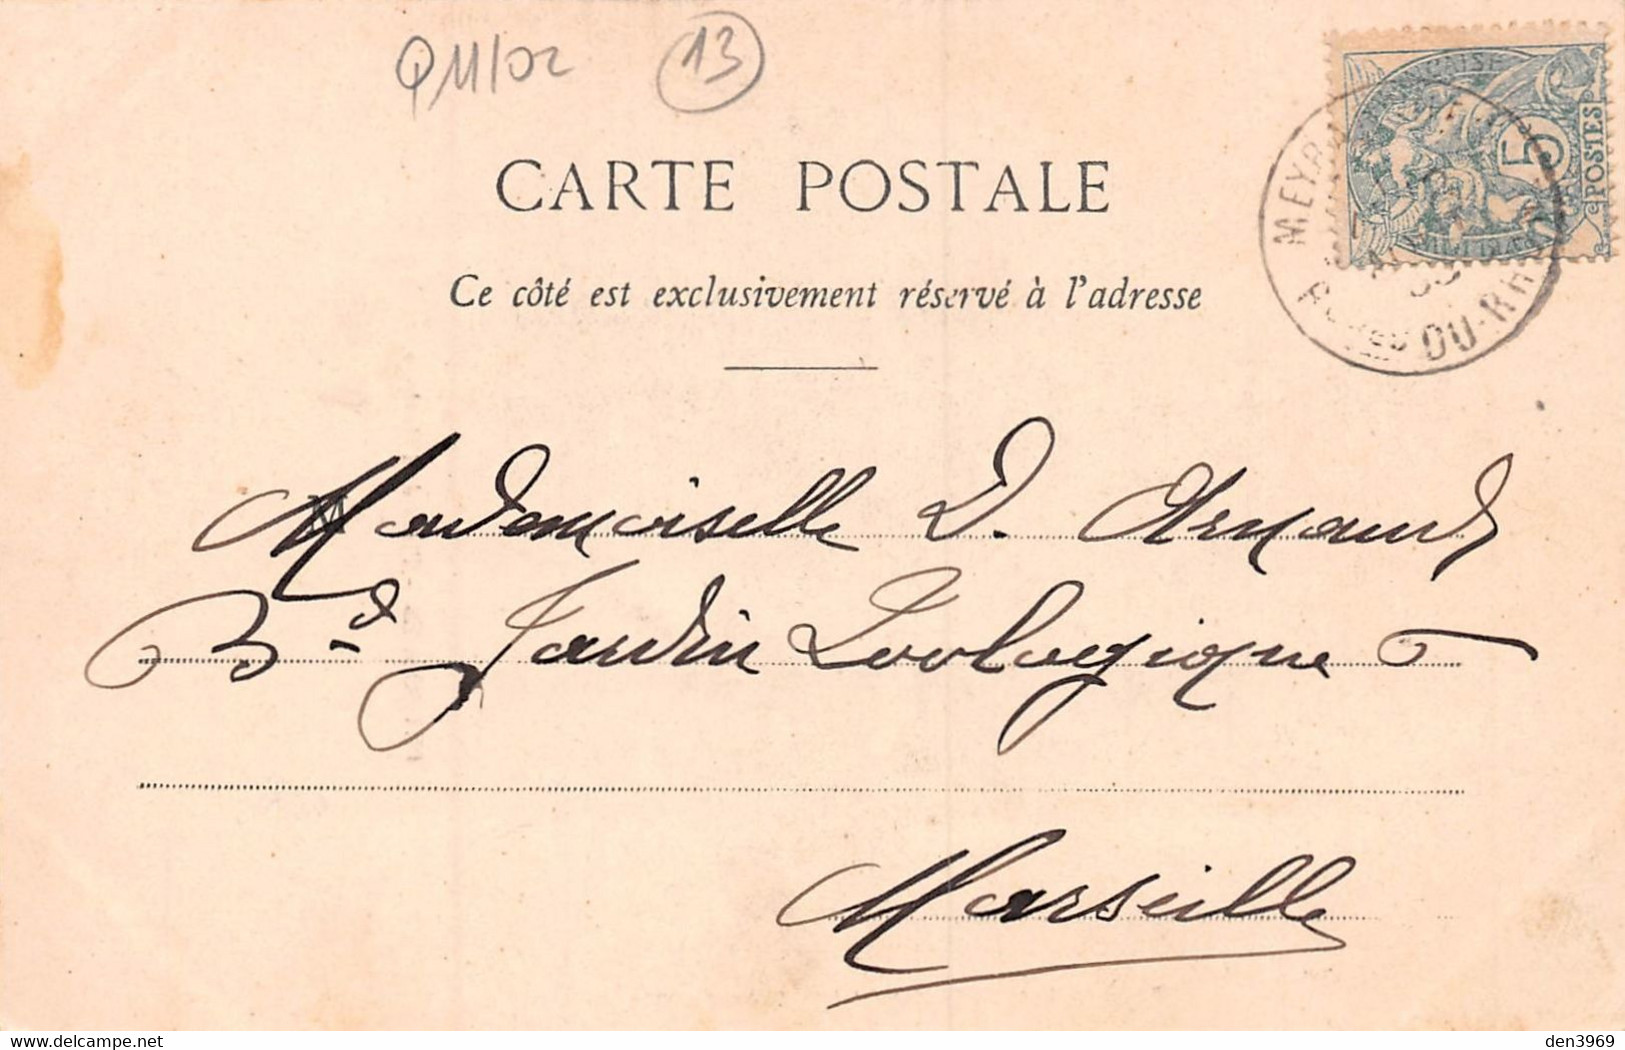 13
CARTE POSTALE
Ce côté est exclusivement réservé à l'adresse
5
POSTES
DU-RHÔNE
M
Mademoiselle D. Arnaud
Bd Jardin Zoologique
Marseille
www.delcampe.net
den3969